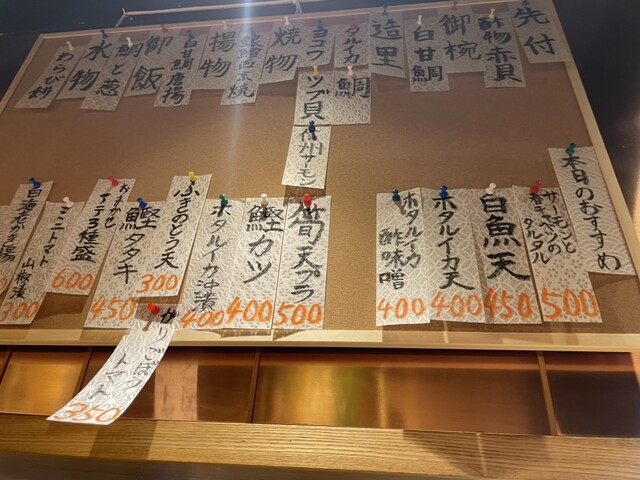 先付
酢物 赤貝
御椀
白甘鯛
造里
タルイカ
鯛
ヨコワ
ツブ貝
信州サーモン
焼物
銀鱈西京焼
揚物
白甘鯛唐揚
御飯
鯛と葱
水物
わらび餅
本日のおすすめ
サーモンと
春キャベツの
タルタル
500
白魚天
450
ホタルイカ天
400
ホタルイカ
酢味噌
400
筍天プラ
500
鰹カツ
400
ホタルイカ沖漬
400
ふきのとう天
300
鰹タタキ
450
おまかせ
アテ3種盛
ミニトマト
600
山椒漬
300
350